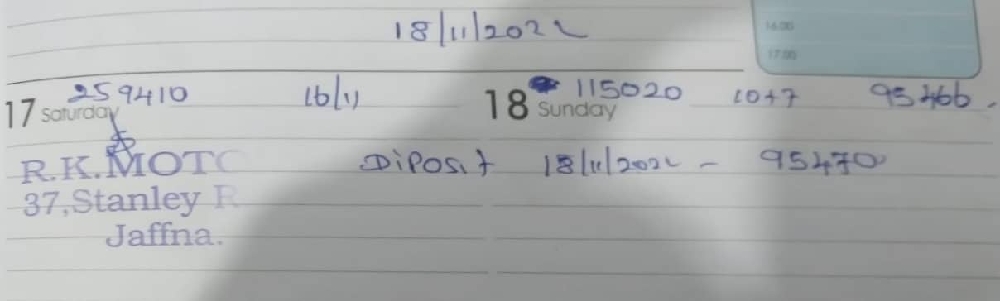 16.00
18/11/2022
17.00
259410 16/11 115020 10+7 95466.
17 Saturday 18 Sunday
R.K.MOTO Diposit 18/11/2022 - 95470
37,Stanley R
Jaffna.